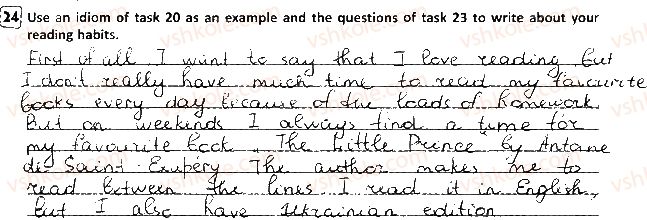 24 Use an idiom of task 20 as an example and the questions of task 23 to write about your
reading habits.
First of all, I want to say that I love reading, but
I don't really have much time to read my favourite
books every day because of the loads of homework.
But on weekends I always find a time for
my favourite book „The Little Prince" by Antoine
de Saint-Exupéry. The author makes me to
read between the lines. I read it in English,
but I also have Ukrainian edition